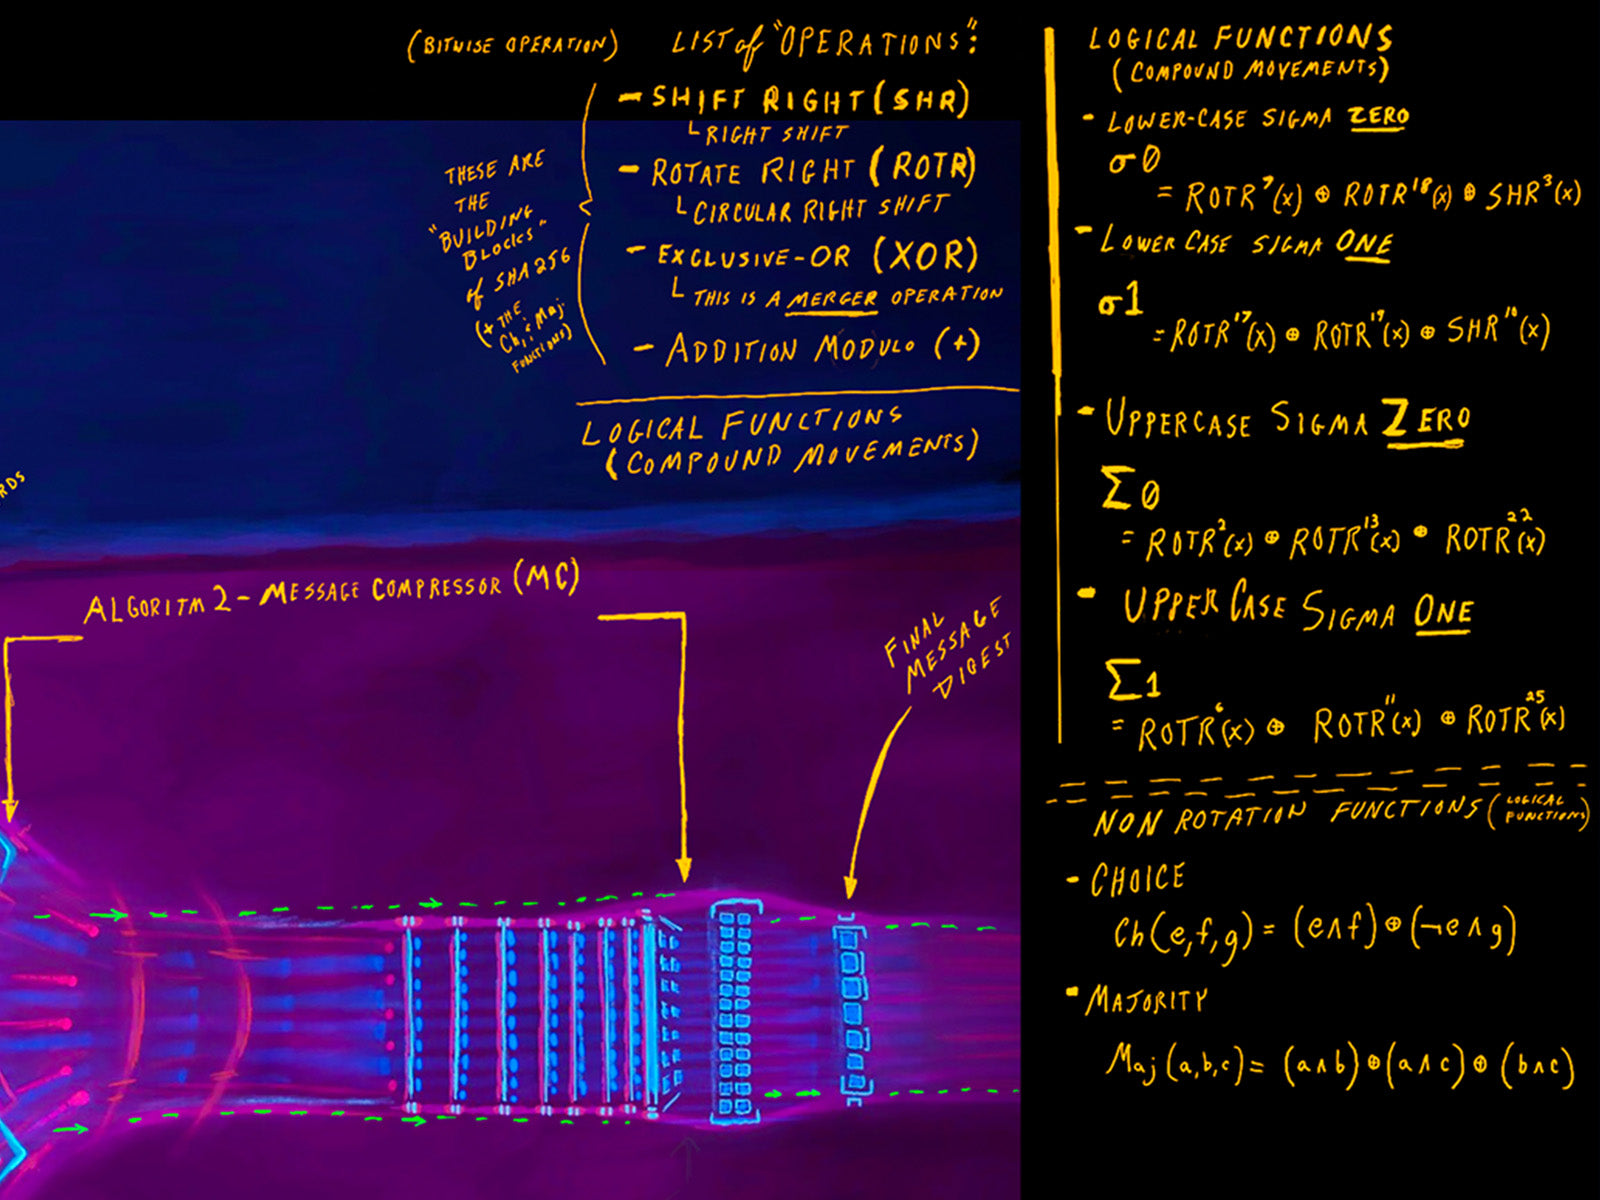 (BITWISE OPERATION)
LIST of "OPERATIONS":
- SHIFT RIGHT (SHR)
RIGHT SHIFT
- ROTATE RIGHT (ROTR)
CIRCULAR RIGHT SHIFT
- EXCLUSIVE-OR (XOR)
THIS IS A MERGER OPERATION
- ADDITION MODULO (+)
THESE ARE
THE
"BUILDING
BLOCKS"
of SHA256
(+ THE
Ch, & Maj.
FUNCTIONS)
LOGICAL FUNCTIONS
(COMPOUND MOVEMENTS)
RDS
ALGORITM 2 - MESSAGE COMPRESSOR (MC)
FINAL
MESSAGE
DIGEST
LOGICAL FUNCTIONS
(COMPOUND MOVEMENTS)
- LOWER-CASE SIGMA ZERO
σ0
= ROTR⁷(x) ⊕ ROTR¹⁸(x) ⊕ SHR³(x)
- LOWER CASE SIGMA ONE
σ1
= ROTR¹⁷(x) ⊕ ROTR¹⁹(x) ⊕ SHR¹⁰(x)
- UPPERCASE SIGMA ZERO
Σ0
= ROTR²(x) ⊕ ROTR¹³(x) ⊕ ROTR²²(x)
- UPPER CASE SIGMA ONE
Σ1
= ROTR⁶(x) ⊕ ROTR¹¹(x) ⊕ ROTR²⁵(x)
NON ROTATION FUNCTIONS (LOGICAL FUNCTIONS)
- CHOICE
Ch(e,f,g) = (e∧f)⊕(¬e∧g)
- MAJORITY
Maj(a,b,c) = (a∧b)⊕(a∧c)⊕(b∧c)